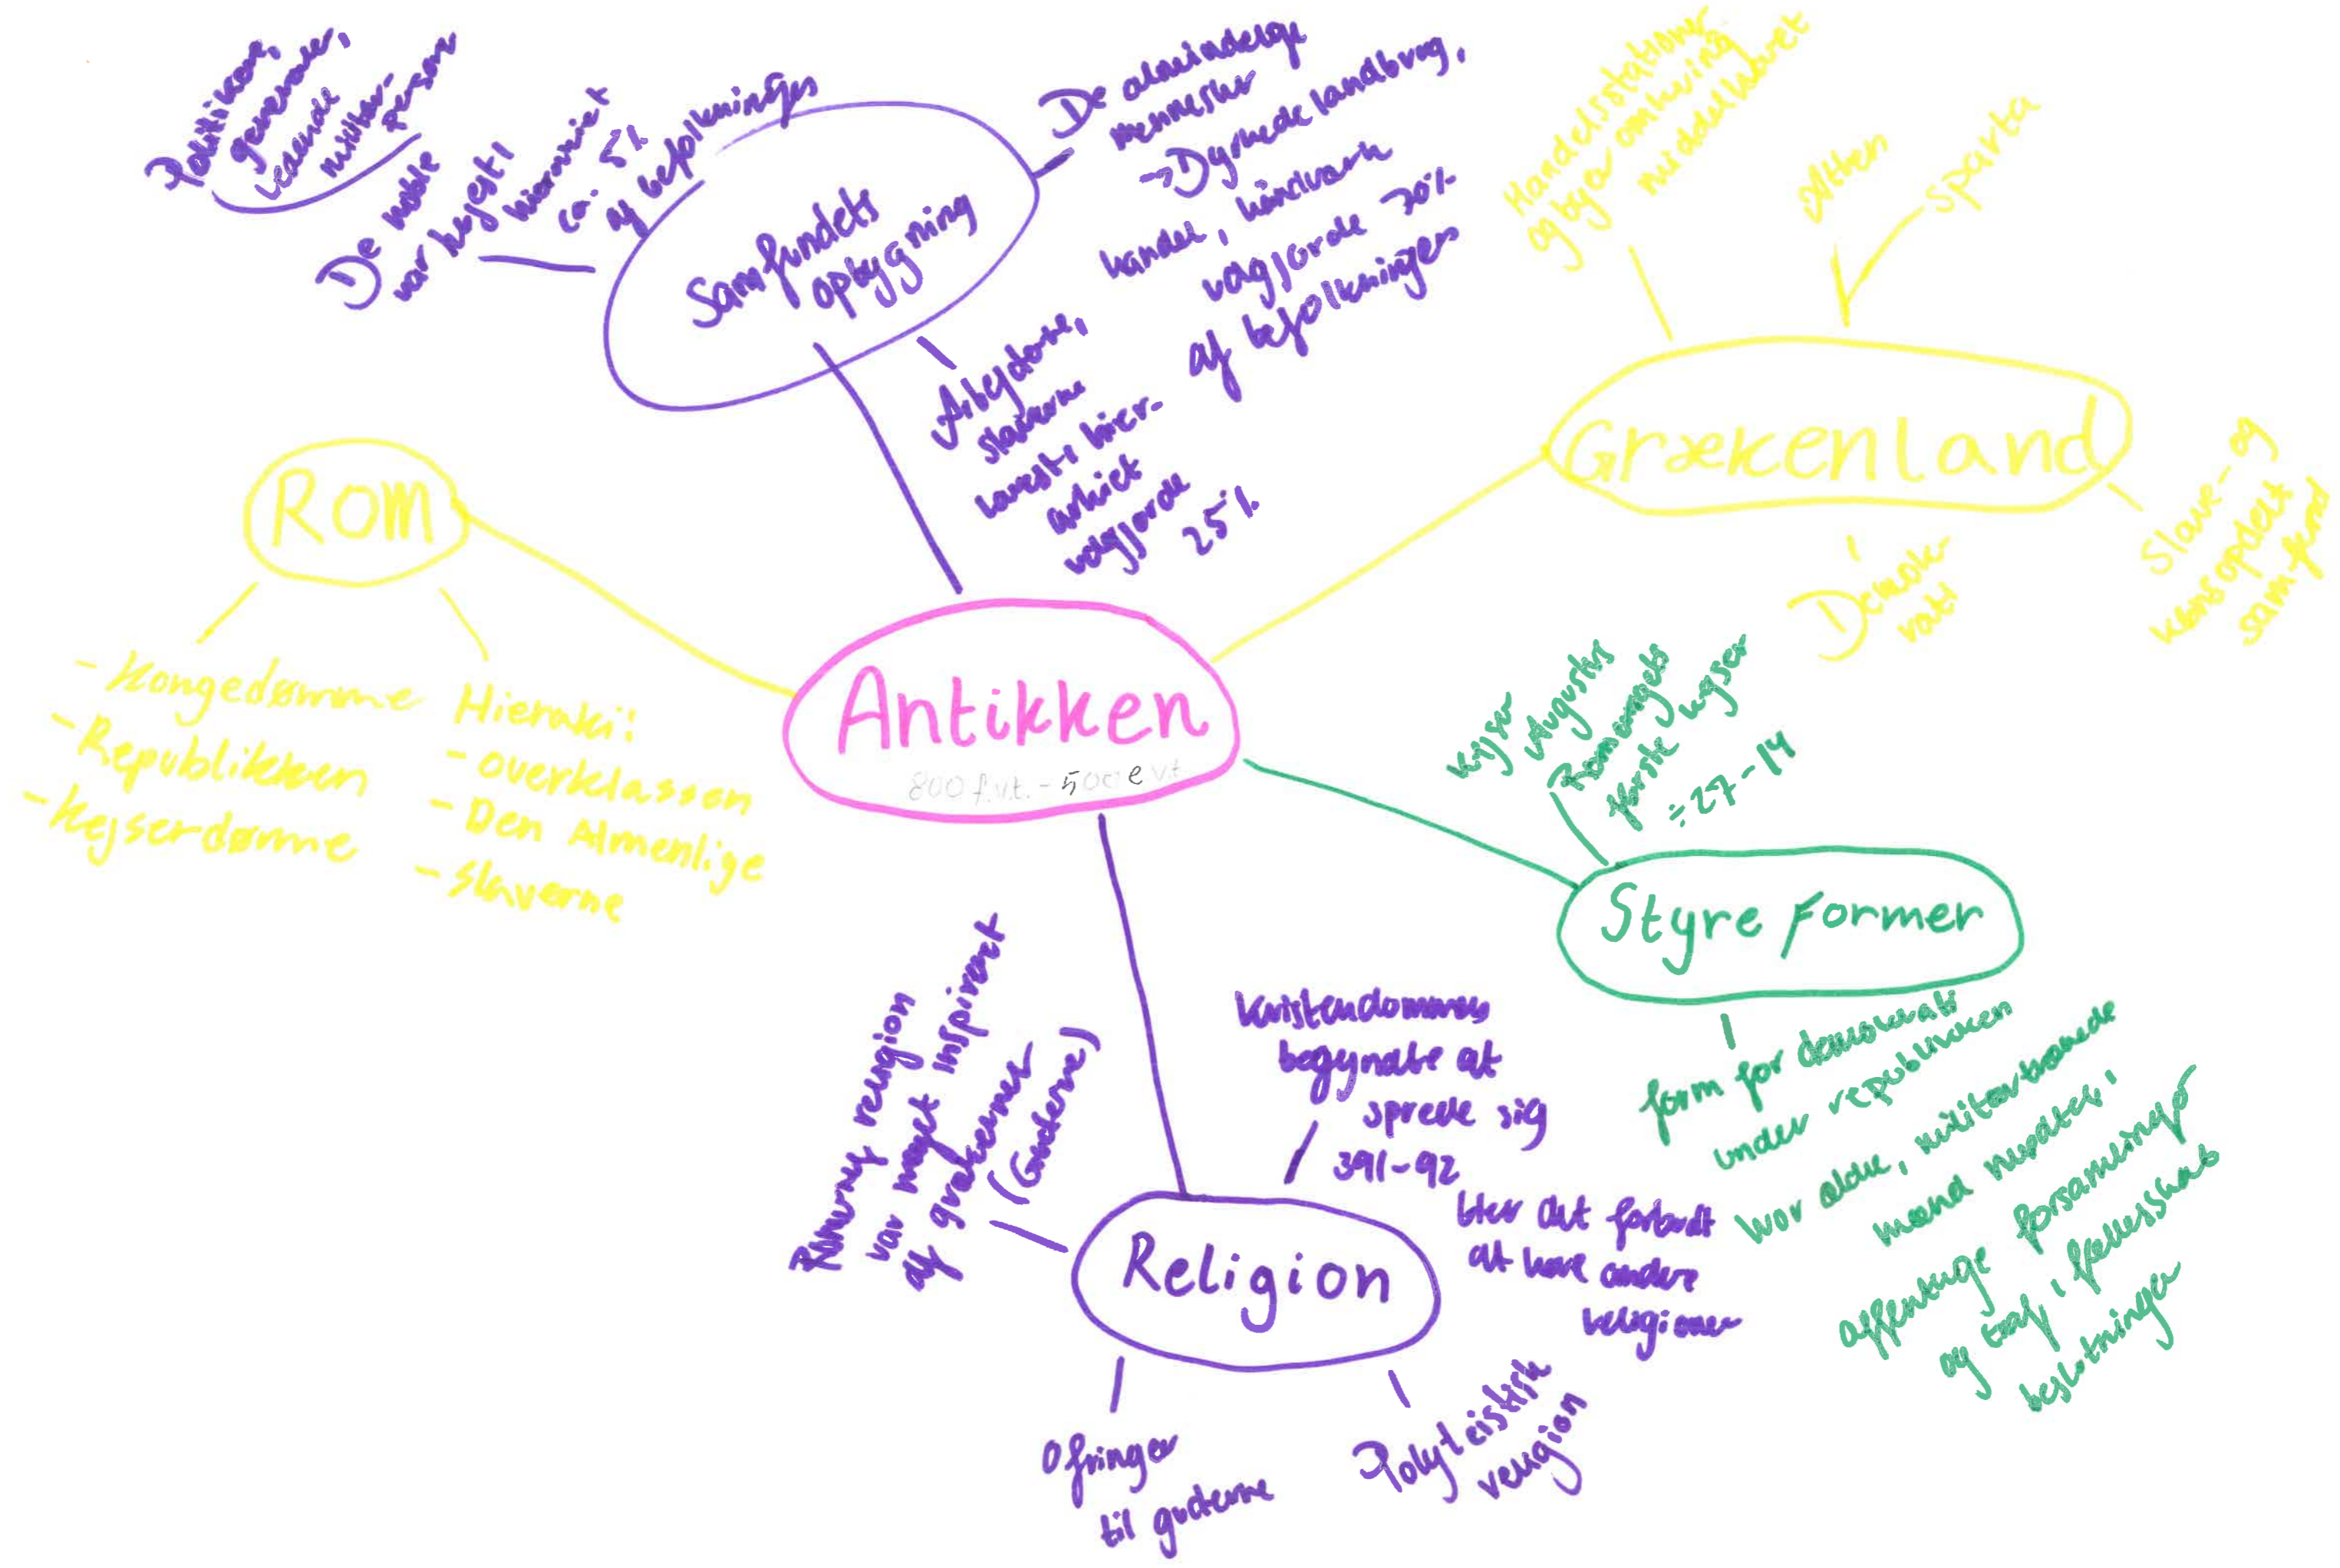 Politikere,
generaler,
ledende
militær-
person
De noble
var højest i
hierarkiet
ca. 5%
af befolkningen
Samfundets
opbygning
De almindelige
mennesker
→ Dyrkede landbrug,
handel, håndværk
udgjorde 70%
af befolkningen
Arbejderne,
slaverne
lavest i hier-
arkiet
udgjorde
25%
Handelsstationer
og byer omkring
middelhavet
Athen
Sparta
Grækenland
Slave- og
kønsopdelt
samfund
Demok-
rati
Rom
- Kongedømme
- Republikken
- Kejserdømme
Hieraki:
- overklassen
- Den Almenlige
- Slaverne
Antikken
800 f.v.t. - 500 e v.t
Kejser
Augustus
Romerrigets
første kejser
÷27-14
Styre former
form for demokrati
under republikken
hvor ældre, militærtrænede
mænd mødtes i
offentlige forsamlinger
og traf i fællesskab
beslutninger
Romernes religion
var meget inspireret
af grækerne
(Guderne)
Kristendommen
begyndte at
sprede sig
391-92
blev det forbudt
at have andre
religioner
Religion
Ofringer
til guderne
Polyteistisk
religion